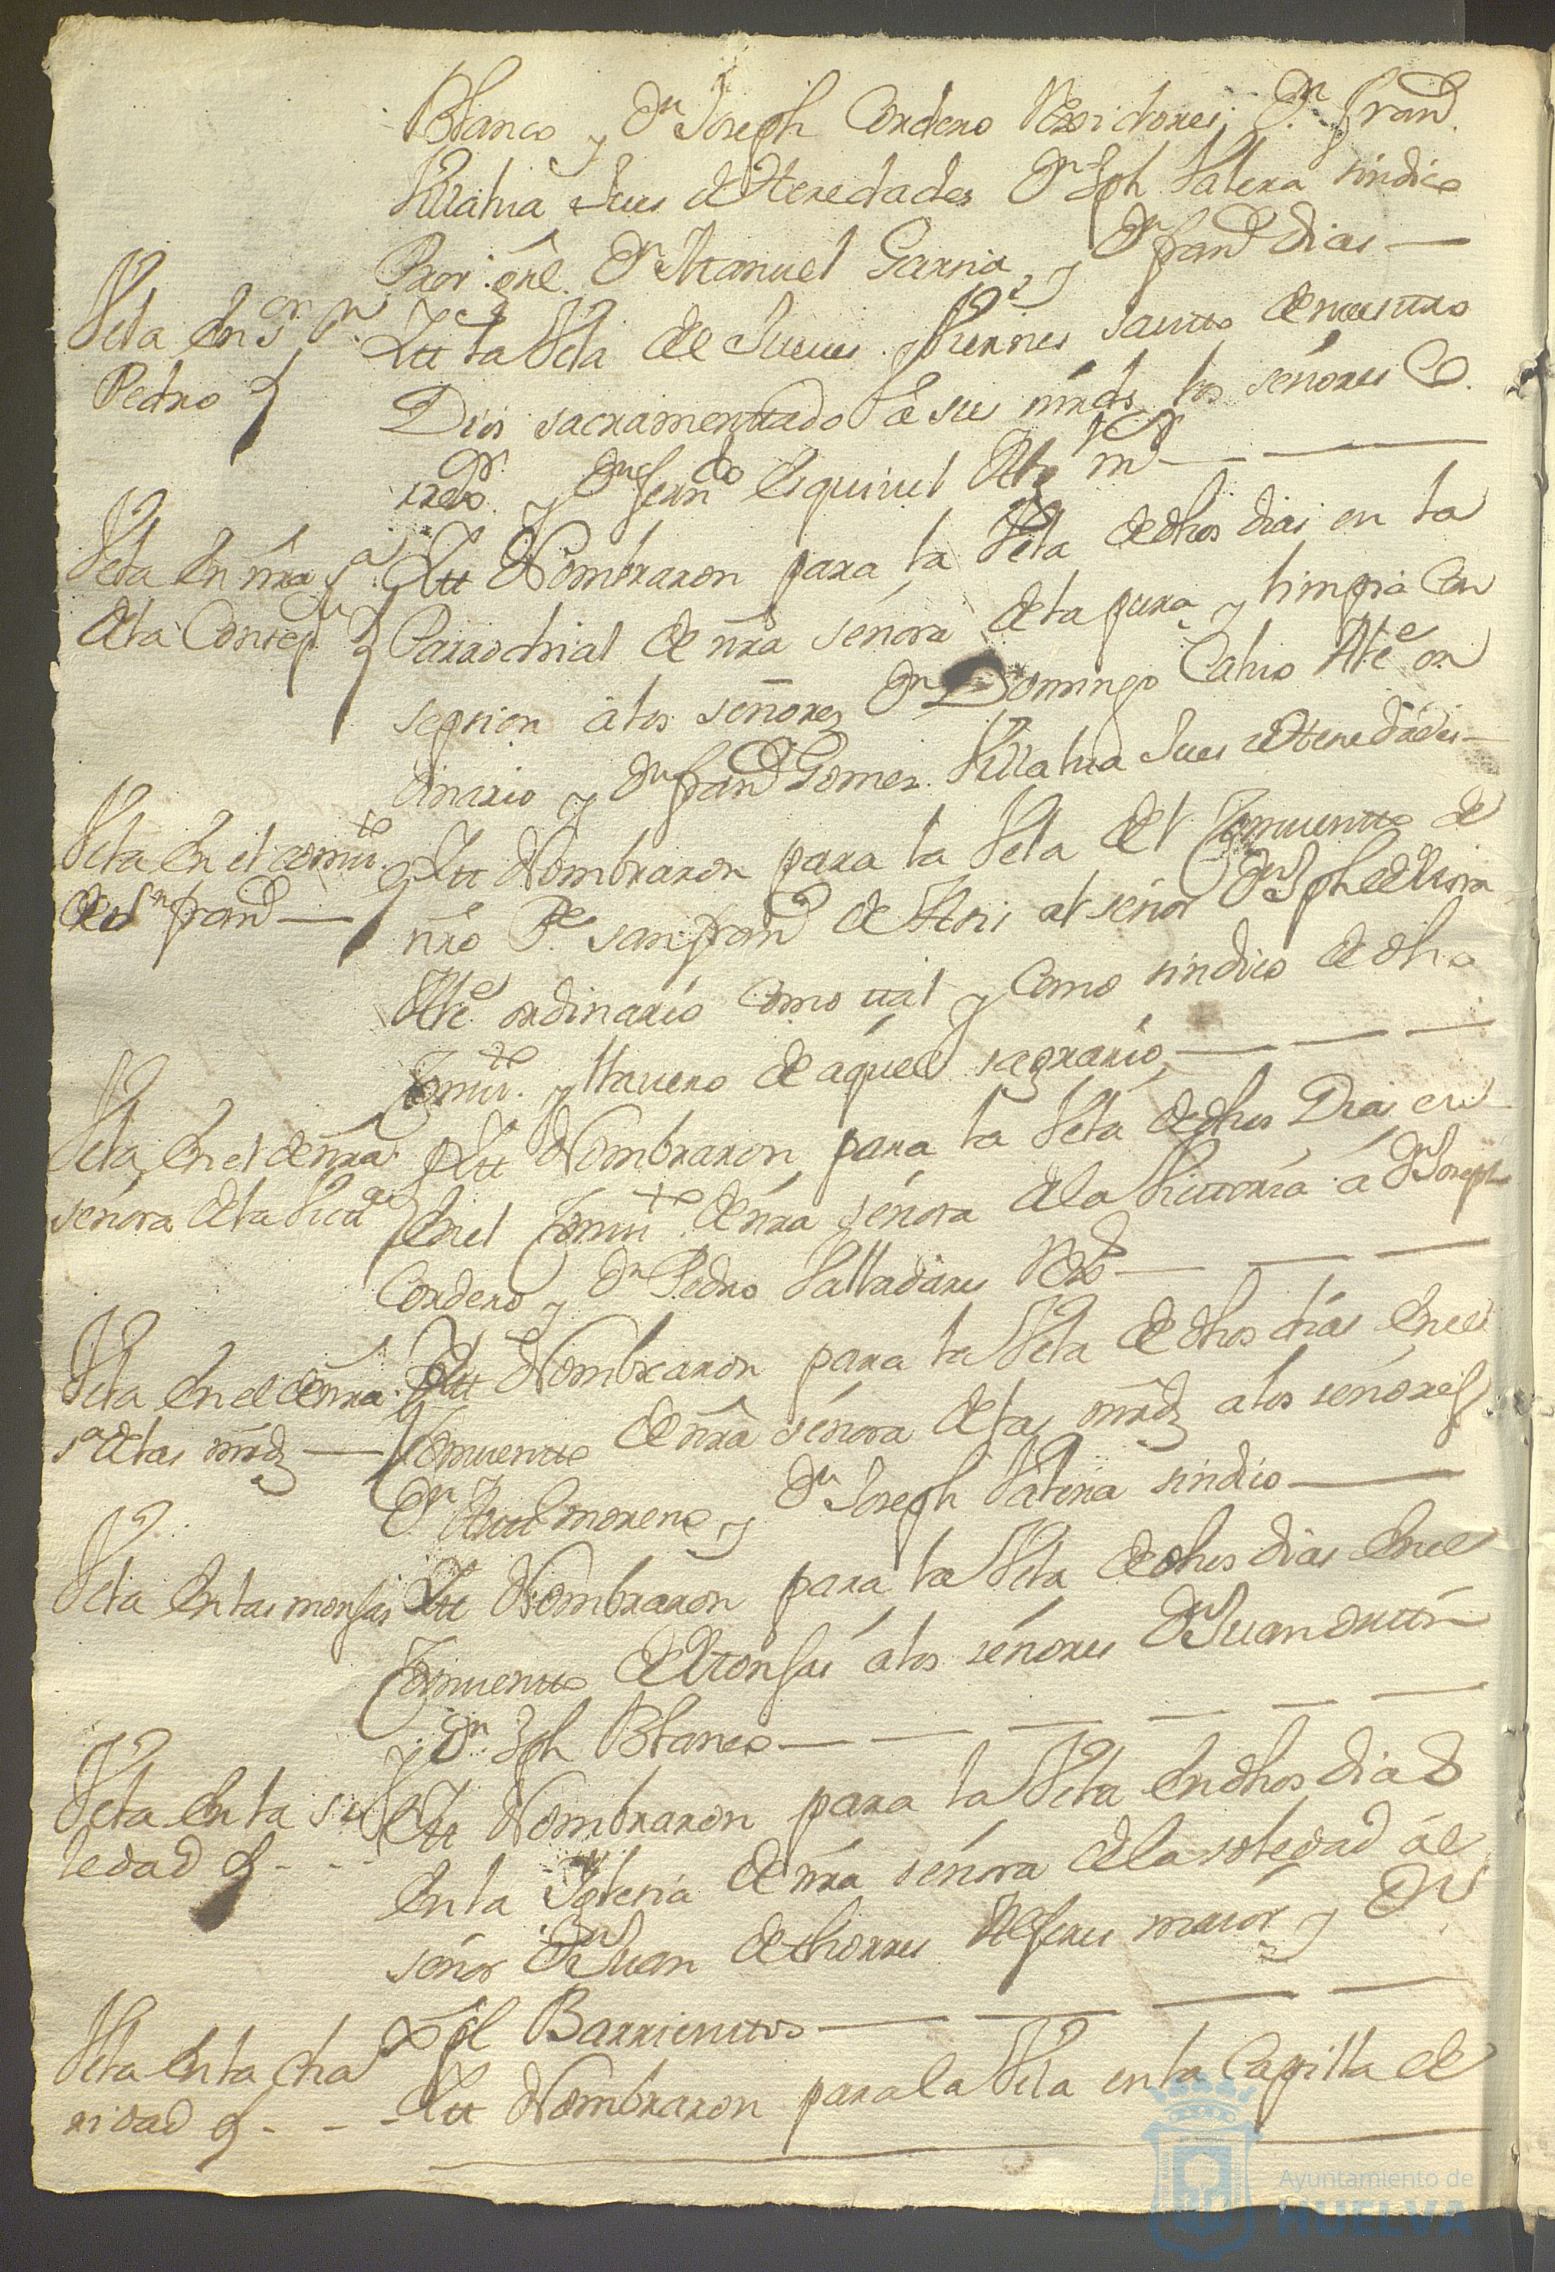 Blanco y Dn Joseph Cordero Rexidores, Dn Franco
Villalva Jues de Heredades Dn Jph Valera sindico
Pror grl. Dn Manuel Garzia, y Dn Franco Dias —
Vela en Sn Pn.
Pedro
Ytt la Vela de Jueves y Viernes santto de nuesttro
Dios sacramenttado â sus mrds los señores Co
rrexor y Dn Ferndo Esquivel Alg mor —
Vela en nra Sa
de la Consepn
Ytt Nombraron para la Vela de dhos dias en la
Parrochial de nra señora de la pura y limpia Con
sepsion â los señores Dn Domingo Calvo Alce or
dinario y Dn Franco Gomez Villalva Jues de Heredades —
Vela en el convto
de Sn Franco —
Ytt Nombraron para la Vela del Convento de
nro Pe san Franco de Asis al señor Dn Jph de
Alce ordinario como ttal y como sindico de dho
Convto y llavero de aquel sagrario, — — —
Vela en el de nra
señora de la Victta
Ytt Nombraron para la Vela de dhos Dias en
en el Convto de nra señora de la Victtoria â Dn Joseph
Cordero y Dn Pedro Valladares Rexs — — —
Vela en el de nra
sa de las mrds —
Ytt Nombraron para la Vela de dhos dias en el
Convento de nra señora de las mrds a los señores
Dn moreno y Dn Joseph Valera sindico —
Vela en las monjas
Ytt Nombraron para la Vela de dhos dias en el
Convento de Monjas a los señores Dn Juan
y Dn Jph Blanco — — — — —
Vela en la so
ledad
Ytt Nombraron para la Vela en dhos dias
en la Yglesia de nra señora de la soledad âl
señor Dn Juan de thorres Alferes maior y Dn
Xptl Barrienttos — — — —
Vela en la cha
ridad
Ytt Nombraron para la Vela en la Capilla de
Ayuntamiento de
HUELVA